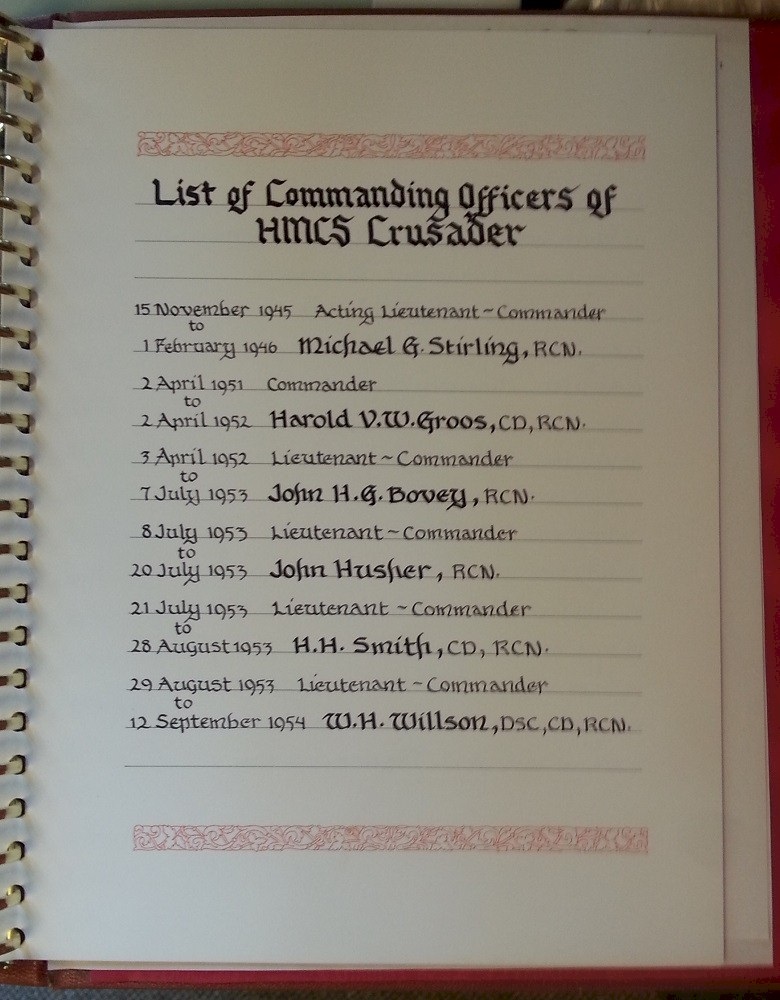 List of Commanding Officers of
HMCS Crusader
15 November 1945 Acting Lieutenant~Commander
to
1 February 1946 Michael G. Stirling, RCN.
2 April 1951 Commander
to
2 April 1952 Harold V.W. Groos, CD, RCN.
3 April 1952 Lieutenant~Commander
to
7 July 1953 John H.G. Bovey, RCN.
8 July 1953 Lieutenant~Commander
to
20 July 1953 John Husher, RCN.
21 July 1953 Lieutenant~Commander
to
28 August 1953 H.H. Smith, CD, RCN.
29 August 1953 Lieutenant~Commander
to
12 September 1954 W.H. Willson, DSC, CD, RCN.